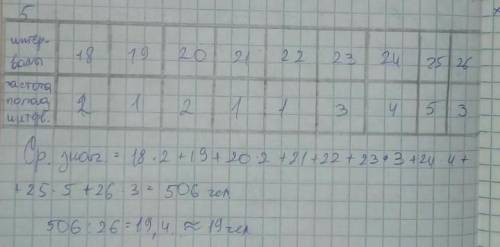 5
интер-
валы 18 19 20 21 22 23 24 25 26
частота
попад.
интер. 2 1 2 1 1 3 4 5 3
Ср. знач = 18·2+19+20·2+21+22+23·3+24·4+
+25·5+26·3= 506 чел
506:26=19,4 ≈ 19чел